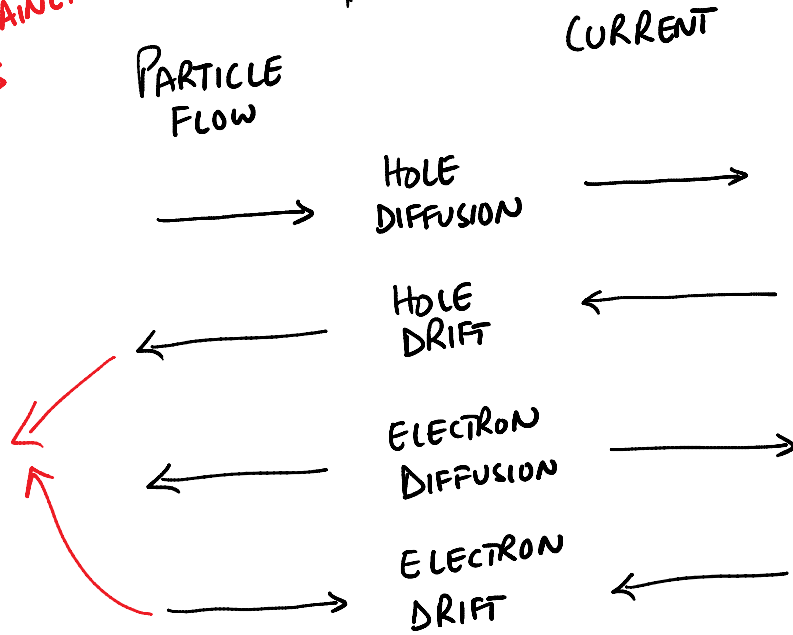 CURRENT
PARTICLE
FLOW
HOLE
DIFFUSION
HOLE
DRIFT
ELECTRON
DIFFUSION
ELECTRON
DRIFT